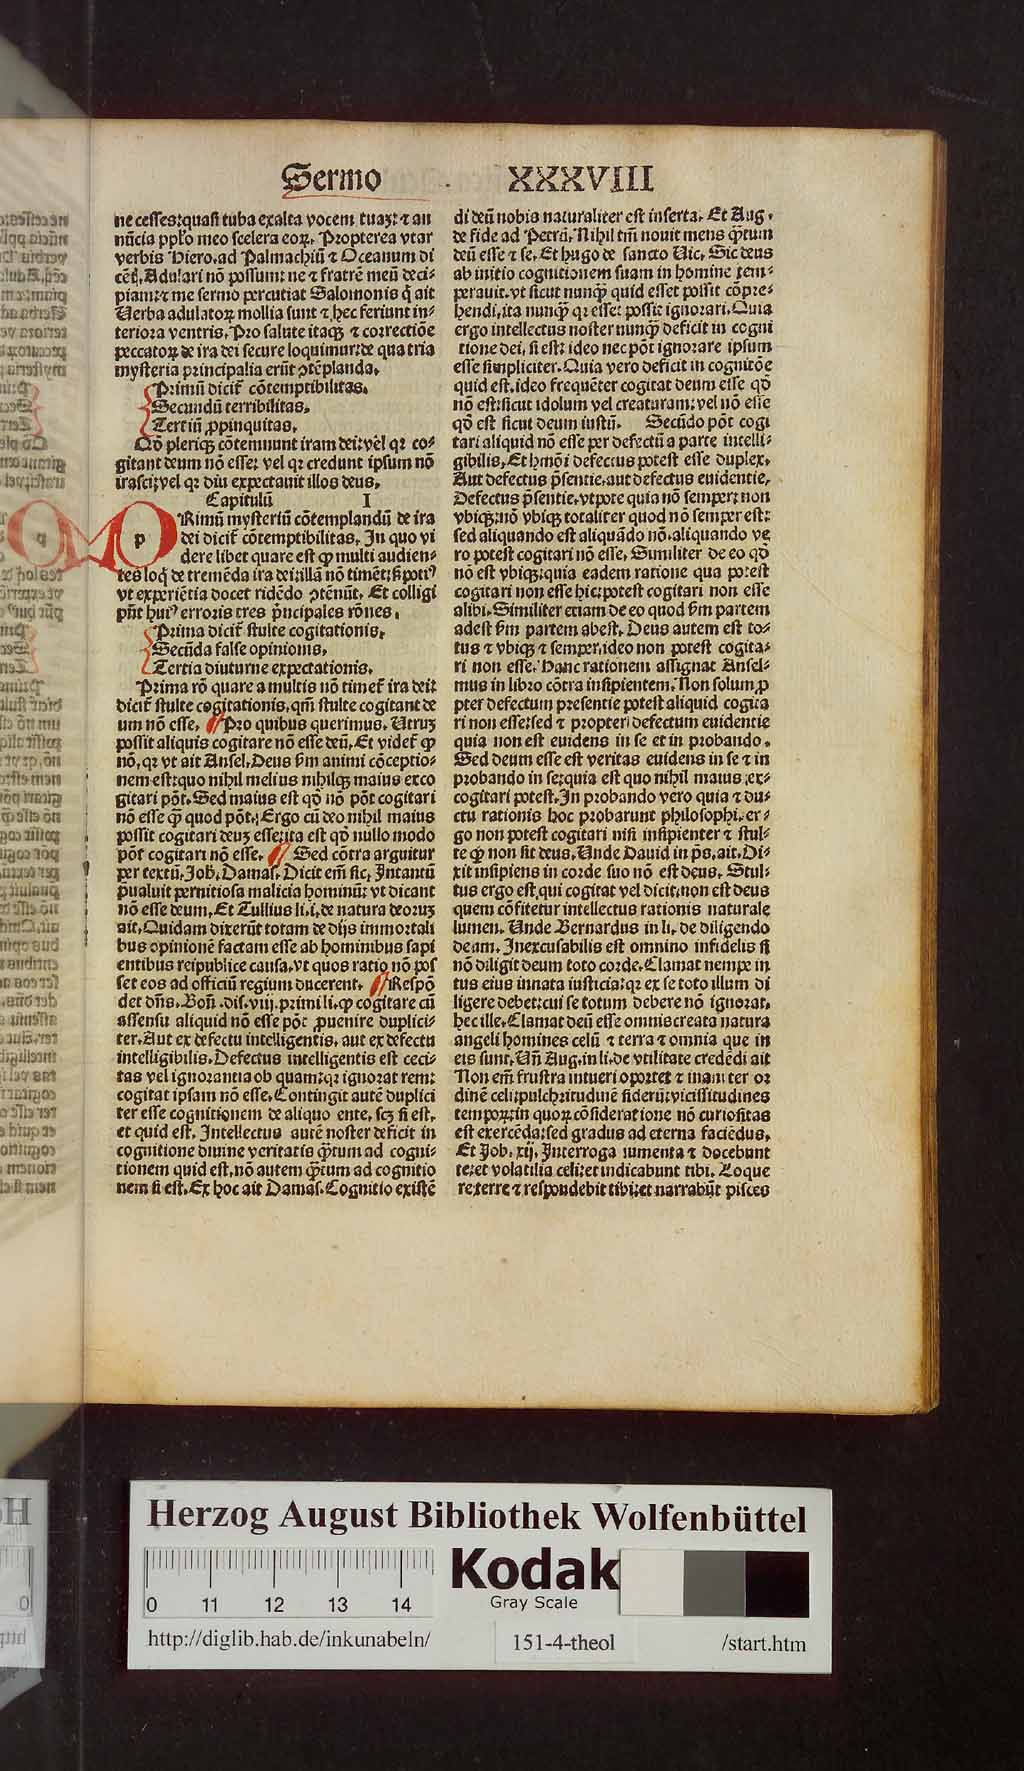 Sermo XXXVIII
ne cesses: quasi tuba exalta vocem tuaꝫ: ⁊ an
nũcia pplo meo scelera eoꝝ. Propterea vtar
verbis Hiero. ad Palmachiũ ⁊ Oceanum di
cẽtꝭ. Adulari nõ possum: ne ⁊ fratrẽ meũ deci-
piam: ⁊ me sermo percutiat Salomonis q̃ ait
Verba adulatoꝝ mollia sunt ⁊ hec feriunt in-
teriora ventris. Pro salute itaqꝫ ⁊ correctiõe
peccatoꝝ de ira dei secure loquimur: de qua tria
mysteria principalia erũt ꝯtẽplanda.
Primũ dicit̃ cõtemptibilitas.
Secundũ terribilitas.
Tertiũ ꝓpinquitas.
Qõ pleriqꝫ cõtemnunt iram dei: vel qꝛ co-
gitant deum nõ esse: vel qꝛ credunt ipsum nõ
irasci: vel qꝛ diu expectauit illos deus.
Capitulũ I
PRimũ mysteriũ cõtemplandũ de ira
dei dicit̃ cõtemptibilitas. In quo vi
dere libet quare est ꝙ multi audien-
tes loq̃ de tremẽda ira dei: illã nõ timẽt: s̃ potiꝰ
vt experiẽtia docet ridẽdo ꝯtẽnũt. Et colligi
pñt huiꝰ erroris tres p̃ncipales rõnes.
Prima dicit̃ stulte cogitationis.
Secũda false opinionis.
Tertia diuturne expectationis.
Prima rõ quare a multis nõ timet̃ ira dei:
dicit̃ stulte cogitationis, qm̃ stulte cogitant de
um nõ esse. Pro quibus querimus. Vtruꝫ
possit aliquis cogitare nõ esse deũ. Et videt̃ ꝙ
nõ, qꝛ vt ait Ansel. Deus ẜm animi cõceptio-
nem est: quo nihil melius nihilqꝫ maius exco
gitari põt. Sed maius est qõ nõ põt cogitari
nõ esse q̃ quod põt. Ergo cũ deo nihil maius
possit cogitari deuꝫ esse: ita est qõ nullo modo
põt cogitari nõ esse. Sed cõtra arguitur
per textũ. Joh. Damas. Dicit em̃ sic. Intantũ
p̃ualuit pernitiosa malicia hominũ: vt dicant
nõ esse deum. Et Tullius li. i. de natura deoruꝫ
ait. Quidam dixerũt totam de dijs immortali
bus opinionẽ factam esse ab hominibus sapi
entibus reipublice causa. vt quos ratio nõ pos
set eos ad officiũ regium ducerent. Respõ
det dñs. Boñ. dis. viij. primi li. ꝙ cogitare cũ
assensu aliquid nõ esse põt ꝓuenire duplici-
ter. Aut ex defectu intelligentis, aut ex defectu
intelligibilis. Defectus intelligentis est ceci-
tas vel ignorantia ob quam: qꝛ ignorat rem:
cogitat ipsam nõ esse. Contingit autẽ duplici
ter esse cognitionem de aliquo ente. scꝫ si est.
et quid est. Intellectus autẽ noster deficit in
cognitione diuine veritatis q̃tum ad cogni-
tionem quid est. nõ autem q̃tum ad cognitio
nem si est. Ex hoc ait Damas. Cognitio existẽ
di deũ nobis naturaliter est inserta. Et Aug.
de fide ad Petrũ. Nihil tm̃ nouit mens q̃tum
deũ esse ⁊ se. Et hugo de sancto Vic. Sic deus
ab initio cognitionem suam in homine tem-
perauit. vt sicut nunq̃ quid esset possit cõpre-
hendi, ita nunq̃ qꝛ esset possit ignorari. Quia
ergo intellectus noster nunq̃ deficit in cogni
tione dei, si est: ideo nec põt ignorare ipsum
esse simpliciter. Quia vero deficit in cognitõe
quid est. ideo frequẽter cogitat deum esse qõ
nõ est: sicut idolum vel creaturam: vel nõ esse
qõ est sicut deum iustũ. Secũdo põt cogi
tari aliquid nõ esse per defectũ a parte intelli-
gibilis. Et hmõi defectus potest esse duplex.
Aut defectus p̃sentie. aut defectus euidentie.
Defectus p̃sentie. vtpote quia nõ semper: non
vbiqꝫ: nõ vbiqꝫ totaliter quod nõ semper est:
sed aliquando est aliquãdo nõ. aliquando ve
ro potest cogitari nõ esse. Similiter de eo qõ
nõ est vbiqꝫ: quia eadem ratione qua potest
cogitari non esse hic: potest cogitari non esse
alibi. Similiter etiam de eo quod ẜm partem
adest ẜm partem abest. Deus autem est to-
tus ⁊ vbiqꝫ ⁊ semper. ideo non potest cogita-
ri non esse. Hanc rationem assignat Ansel-
mus in libro cõtra insipientem. Non solum ꝓ
pter defectum presentie potest aliquid cogita
ri non esse: sed ⁊ propter defectum euidentie
quia non est euidens in se et in probando.
Sed deum esse est veritas euidens in se ⁊ in
probando in se: quia est quo nihil maius ex-
cogitari potest. In probando vero quia ⁊ du-
ctu rationis hoc probarunt philosophi. er-
go non potest cogitari nisi insipienter ⁊ stul-
te ꝙ non sit deus. Unde Dauid in p̃s. ait. Di-
xit insipiens in corde suo nõ est deus. Stul-
tus ergo est, qui cogitat vel dicit, non est deus
quem cõfitetur intellectus rationis naturale
lumen. Unde Bernardus in li. de diligendo
deam. Inexcusabilis est omnino infidelis si
nõ diligit deum toto corde. Clamat nempe in
tus eius innata iusticia: qꝛ ex se toto illum di
ligere debet: cui se totum debere nõ ignorat.
hec ille. Clamat deũ esse omnis creata natura
angeli homines celũ ⁊ terra ⁊ omnia que in
eis sunt. Vñ Aug. in li. de vtilitate credẽdi ait
Non em̃ frustra intueri oportet ⁊ inaniter or
dinẽ celi: pulchritudinẽ siderũ: vicissitudines
temporꝝ: in quoꝝ cõsideratione nõ curiositas
est exercẽda: sed gradus ad eterna faciẽdus.
Et Job. xij. Interroga iumenta ⁊ docebunt
te: et volatilia celi: et indicabunt tibi. Loque
re terre ⁊ respondebit tibi: et narrabũt pisces
Herzog August Bibliothek Wolfenbüttel
Kodak
Gray Scale
0 11 12 13 14
http://diglib.hab.de/inkunabeln/ 151-4-theol /start.htm